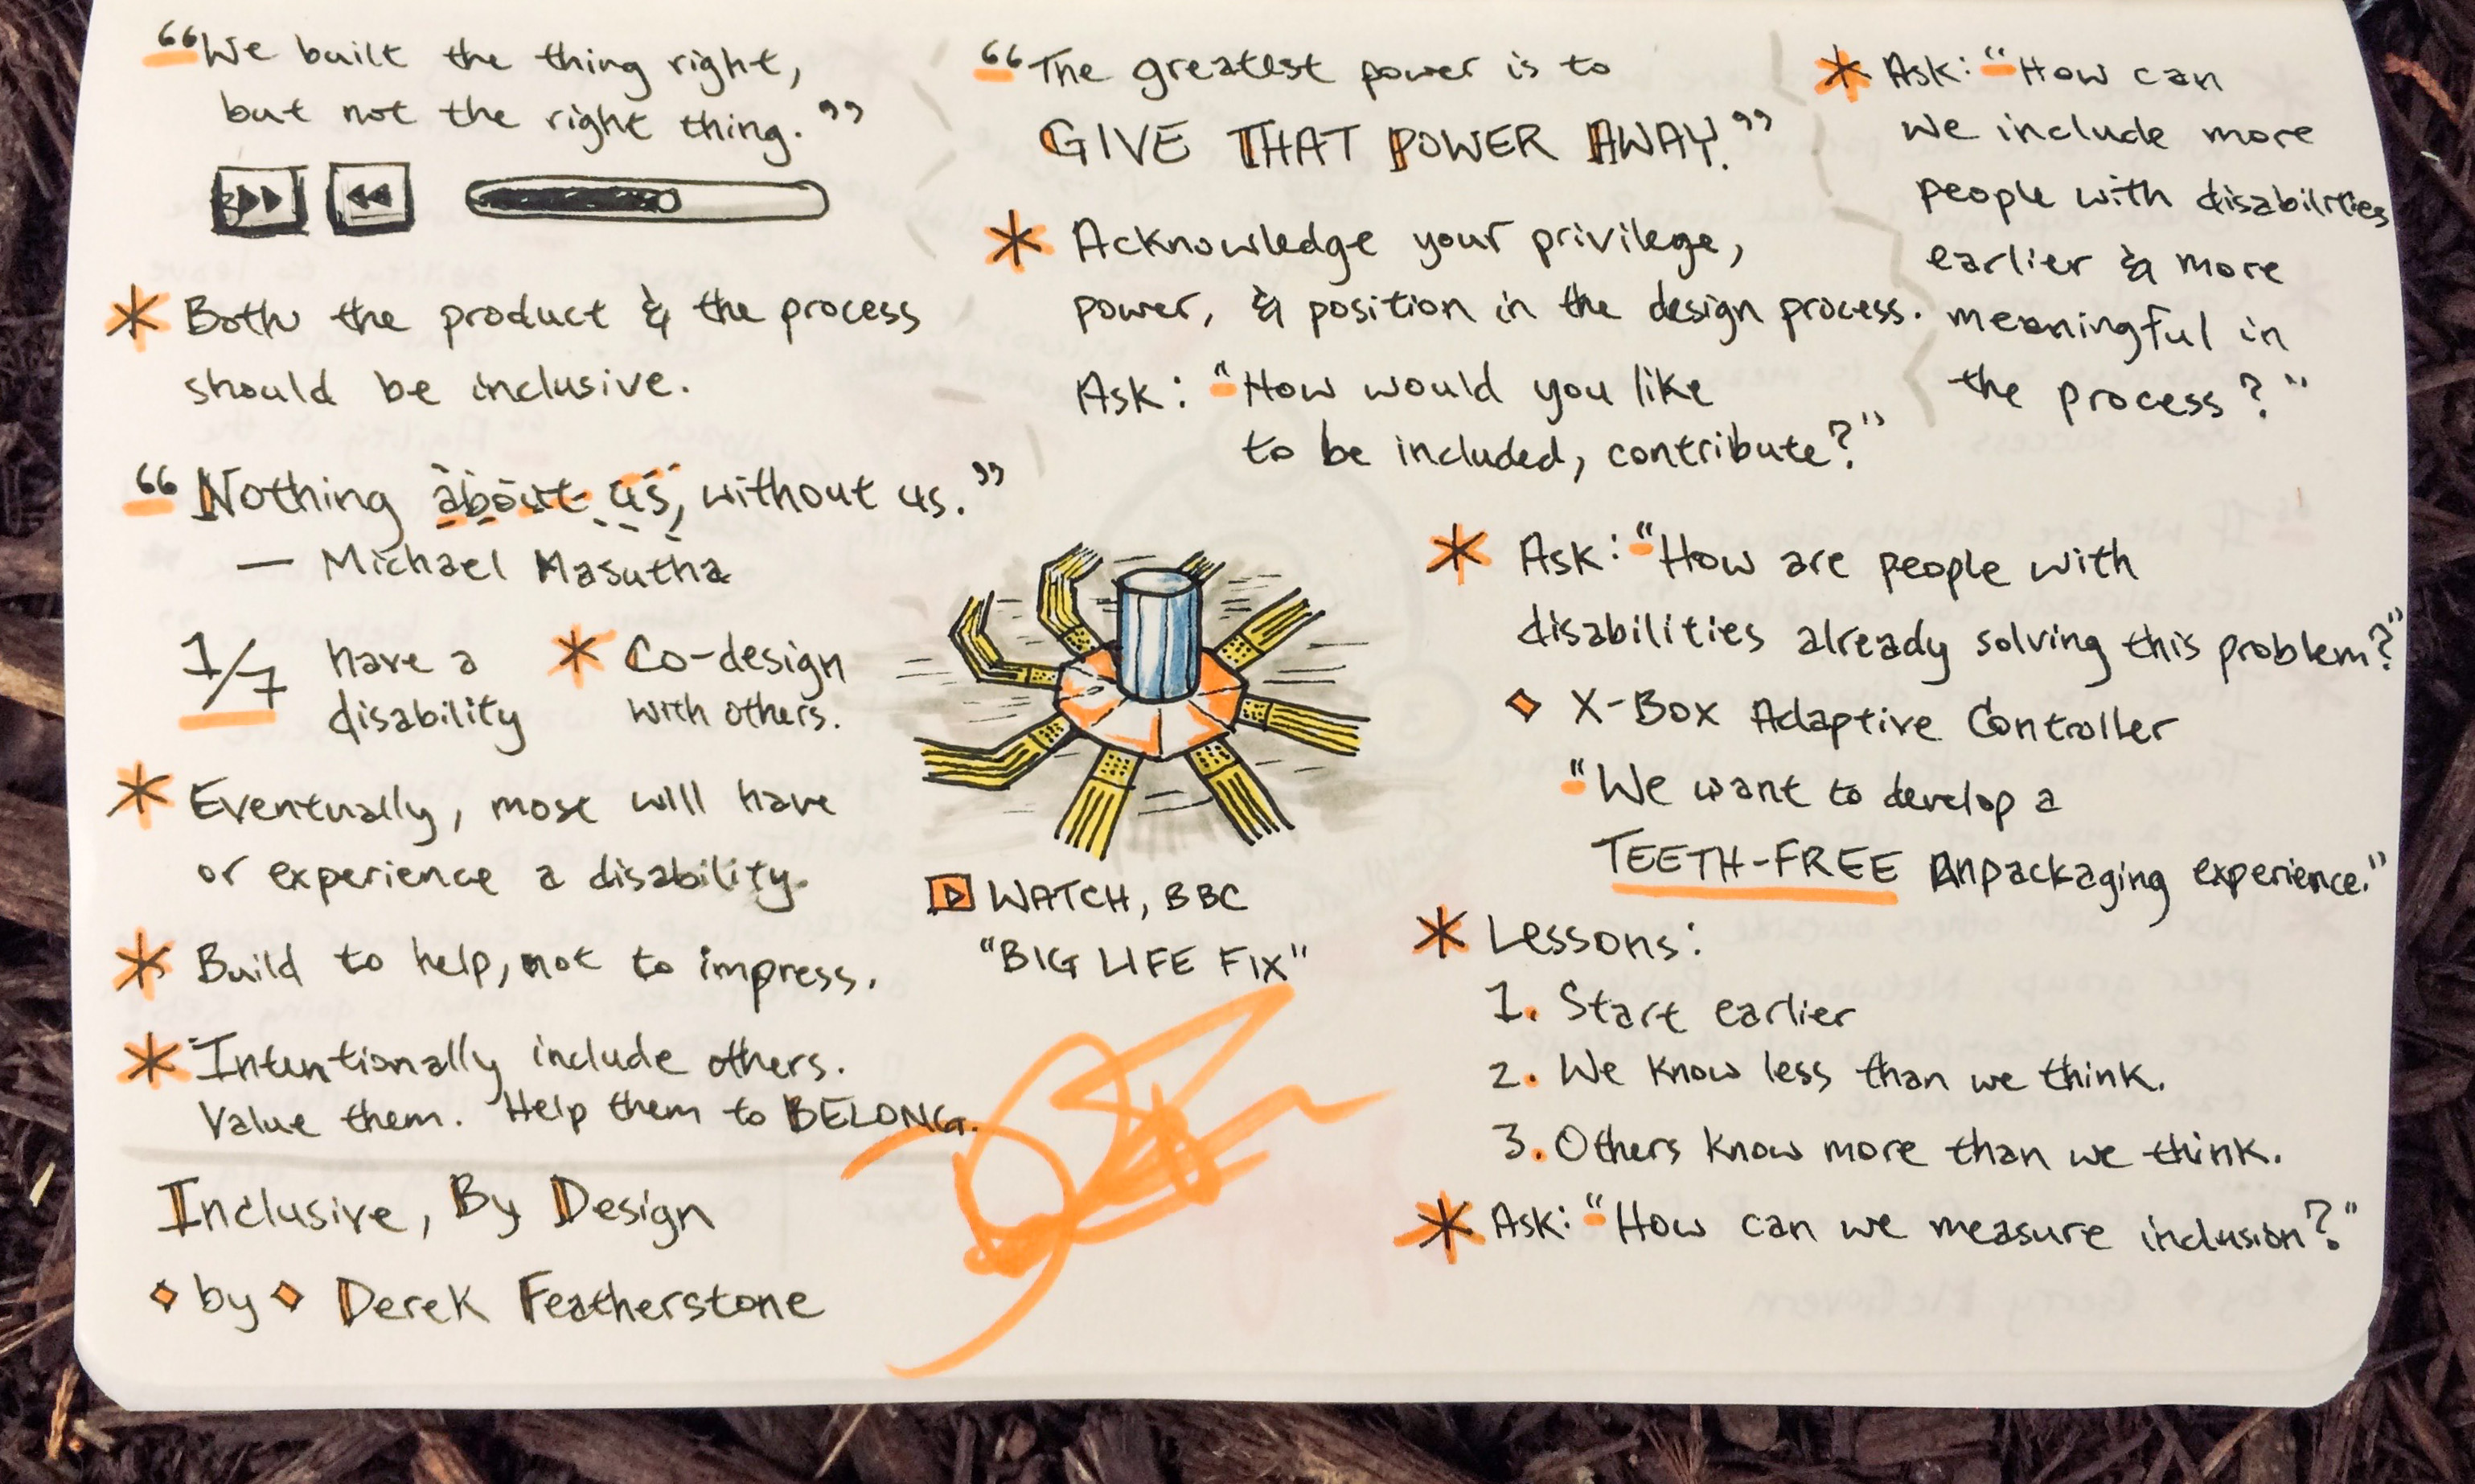 “We built the thing right,
but not the right thing.”
* Both the product & the process
should be inclusive.
“Nothing about us, without us.”
— Michael Masutha
1/7 have a
disability
* Co-design
with others.
* Eventually, most will have
or experience a disability.
* Build to help, not to impress.
* Intentionally include others.
Value them. Help them to BELONG.
Inclusive, By Design
by Derek Featherstone
“The greatest power is to
GIVE THAT POWER AWAY.”
* Acknowledge your privilege,
power, & position in the design process.
Ask: “How would you like
to be included, contribute?”
WATCH, BBC
“BIG LIFE FIX”
* Ask: “How can
we include more
people with disabilities
earlier & more
meaningful in
the process?”
* Ask: “How are people with
disabilities already solving this problem?”
X-Box Adaptive Controller
“We want to develop a
TEETH-FREE unpackaging experience.”
* Lessons:
1. Start earlier
2. We know less than we think.
3. Others know more than we think.
* Ask: “How can we measure inclusion?”